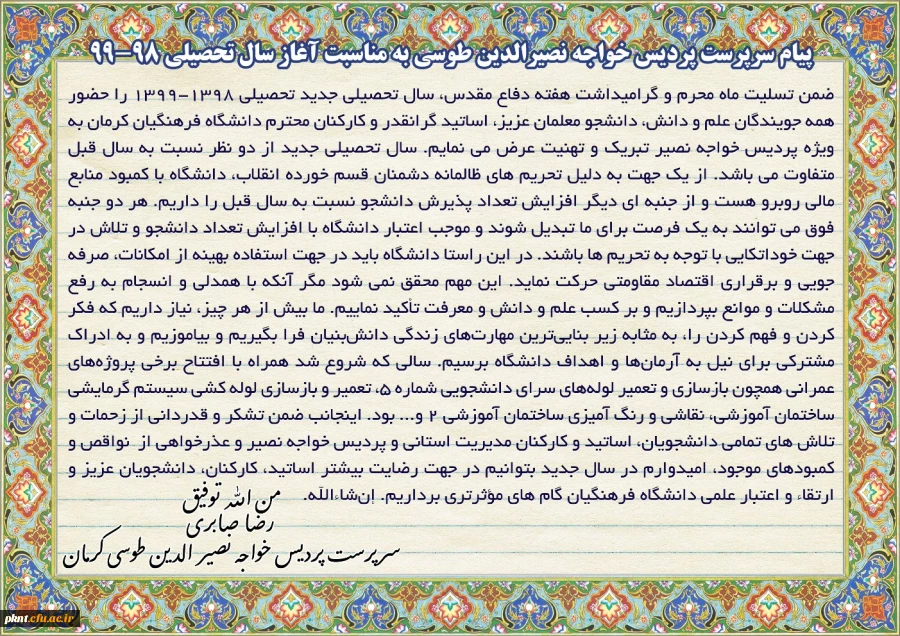 پیام سرپرست پردیس خواجه نصیرالدین طوسی به مناسبت آغاز سال تحصیلی ۹۸-۹۹
ضمن تسلیت ماه محرم و گرامیداشت هفته دفاع مقدس، سال تحصیلی جدید تحصیلی ۱۳۹۸-۱۳۹۹ را حضور
همه جویندگان علم و دانش، دانشجو معلمان عزیز، اساتید گرانقدر و کارکنان محترم دانشگاه فرهنگیان کرمان به
ویژه پردیس خواجه نصیر تبریک و تهنیت عرض می نمایم. سال تحصیلی جدید از دو نظر نسبت به سال قبل
متفاوت می باشد. از یک جهت به دلیل تحریم های ظالمانه دشمنان قسم خورده انقلاب، دانشگاه با کمبود منابع
مالی روبرو هست و از جنبه ای دیگر افزایش تعداد پذیرش دانشجو نسبت به سال قبل را داریم. هر دو جنبه
فوق می توانند به یک فرصت برای ما تبدیل شوند و موجب اعتبار دانشگاه با افزایش تعداد دانشجو و تلاش در
جهت خوداتکایی با توجه به تحریم ها باشند. در این راستا دانشگاه باید در جهت استفاده بهینه از امکانات، صرفه
جویی و برقراری اقتصاد مقاومتی حرکت نماید. این مهم محقق نمی شود مگر آنکه با همدلی و انسجام به رفع
مشکلات و موانع بپردازیم و بر کسب علم و دانش و معرفت تأکید نماییم. ما بیش از هر چیز، نیاز داریم که فکر
کردن و فهم کردن را، به مثابه زیر بنایی‌ترین مهارت‌های زندگی دانش‌بنیان فرا بگیریم و بیاموزیم و به ادراک
مشترکی برای نیل به آرمان‌ها و اهداف دانشگاه برسیم. سالی که شروع شد همراه با افتتاح برخی پروژه‌های
عمرانی همچون بازسازی و تعمیر لوله‌های سرای دانشجویی شماره ۵، تعمیر و بازسازی لوله کشی سیستم گرمایشی
ساختمان آموزشی، نقاشی و رنگ آمیزی ساختمان آموزشی ۲ و... بود. اینجانب ضمن تشکر و قدردانی از زحمات و
تلاش های تمامی دانشجویان، اساتید و کارکنان مدیریت استانی و پردیس خواجه نصیر و عذرخواهی از نواقص و
کمبودهای موجود، امیدوارم در سال جدید بتوانیم در جهت رضایت بیشتر اساتید، کارکنان، دانشجویان عزیز و
ارتقاء و اعتبار علمی دانشگاه فرهنگیان گام های مؤثرتری برداریم. إن‌شاءالله.
من الله توفیق
رضا صابری
سرپرست پردیس خواجه نصیر الدین طوسی کرمان
pknt.cfu.ac.ir